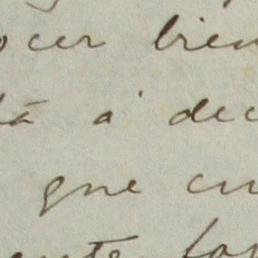 ocer bien
tá á dec
que cu
ente fa